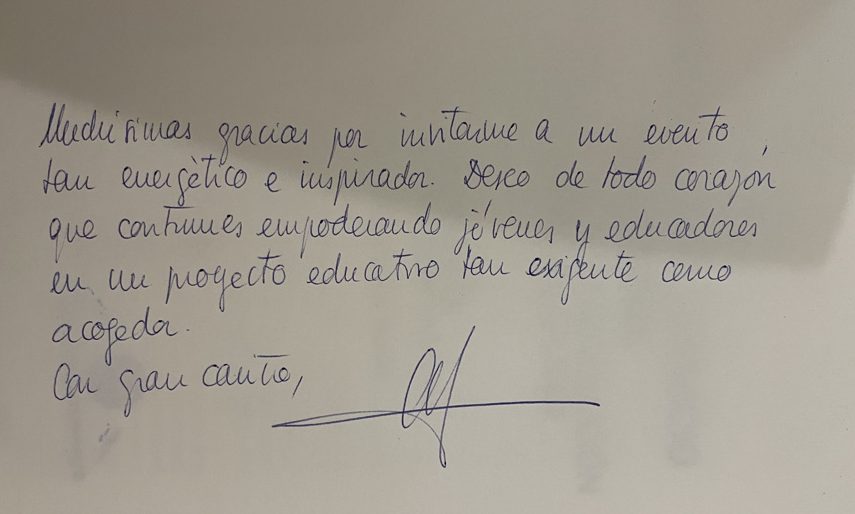 Muchísimas gracias por invitarme a un evento,
tan energètico e inspirador. Deseo de todo corazón
que continues empoderando jóvenes y educadores
en un proyecto educativo tan exigente como
acogedor.
Con gran cariño,